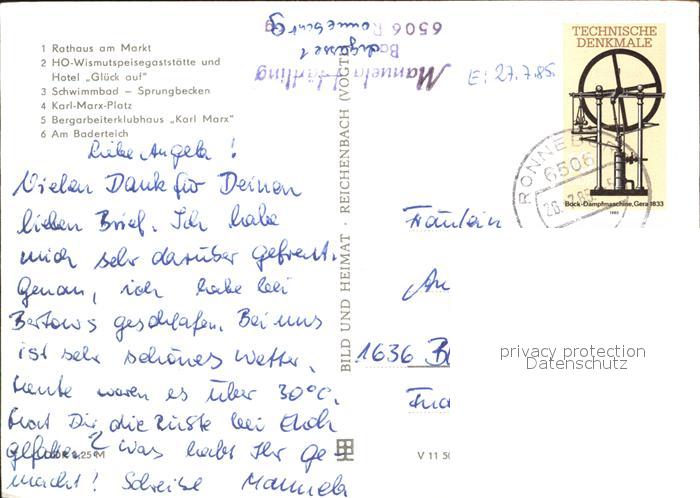 1 Rathaus am Markt
2 HO-Wismutspeisegaststätte und
Hotel „Glück auf"
3 Schwimmbad – Sprungbecken
4 Karl-Marx-Platz
5 Bergarbeiterklubhaus „Karl Marx"
6 Am Baderteich
Liebe Angela!
Vielen Dank für Deinen
lieben Brief. Ich habe
mich sehr darüber gefreut.
Genau, ich habe bei
geschlafen. Bei uns
ist sehr schönes Wetter.
Heute waren es über 30°C.
Hat Dir die Küste bei Euch
gefallen? Was habt Ihr ge-
macht! Schreibe Manuela
25 M
BILD UND HEIMAT · REICHENBACH (VOGTL
V 11 50
Manuela
6506
E: 27.7.85.
TECHNISCHE
DENKMALE
Bock-Dampfmaschine, Gera 1833
1985
RONNEBU
6506
26.7.85
Fräulein
An
1636 B
privacy protection
Datenschutz